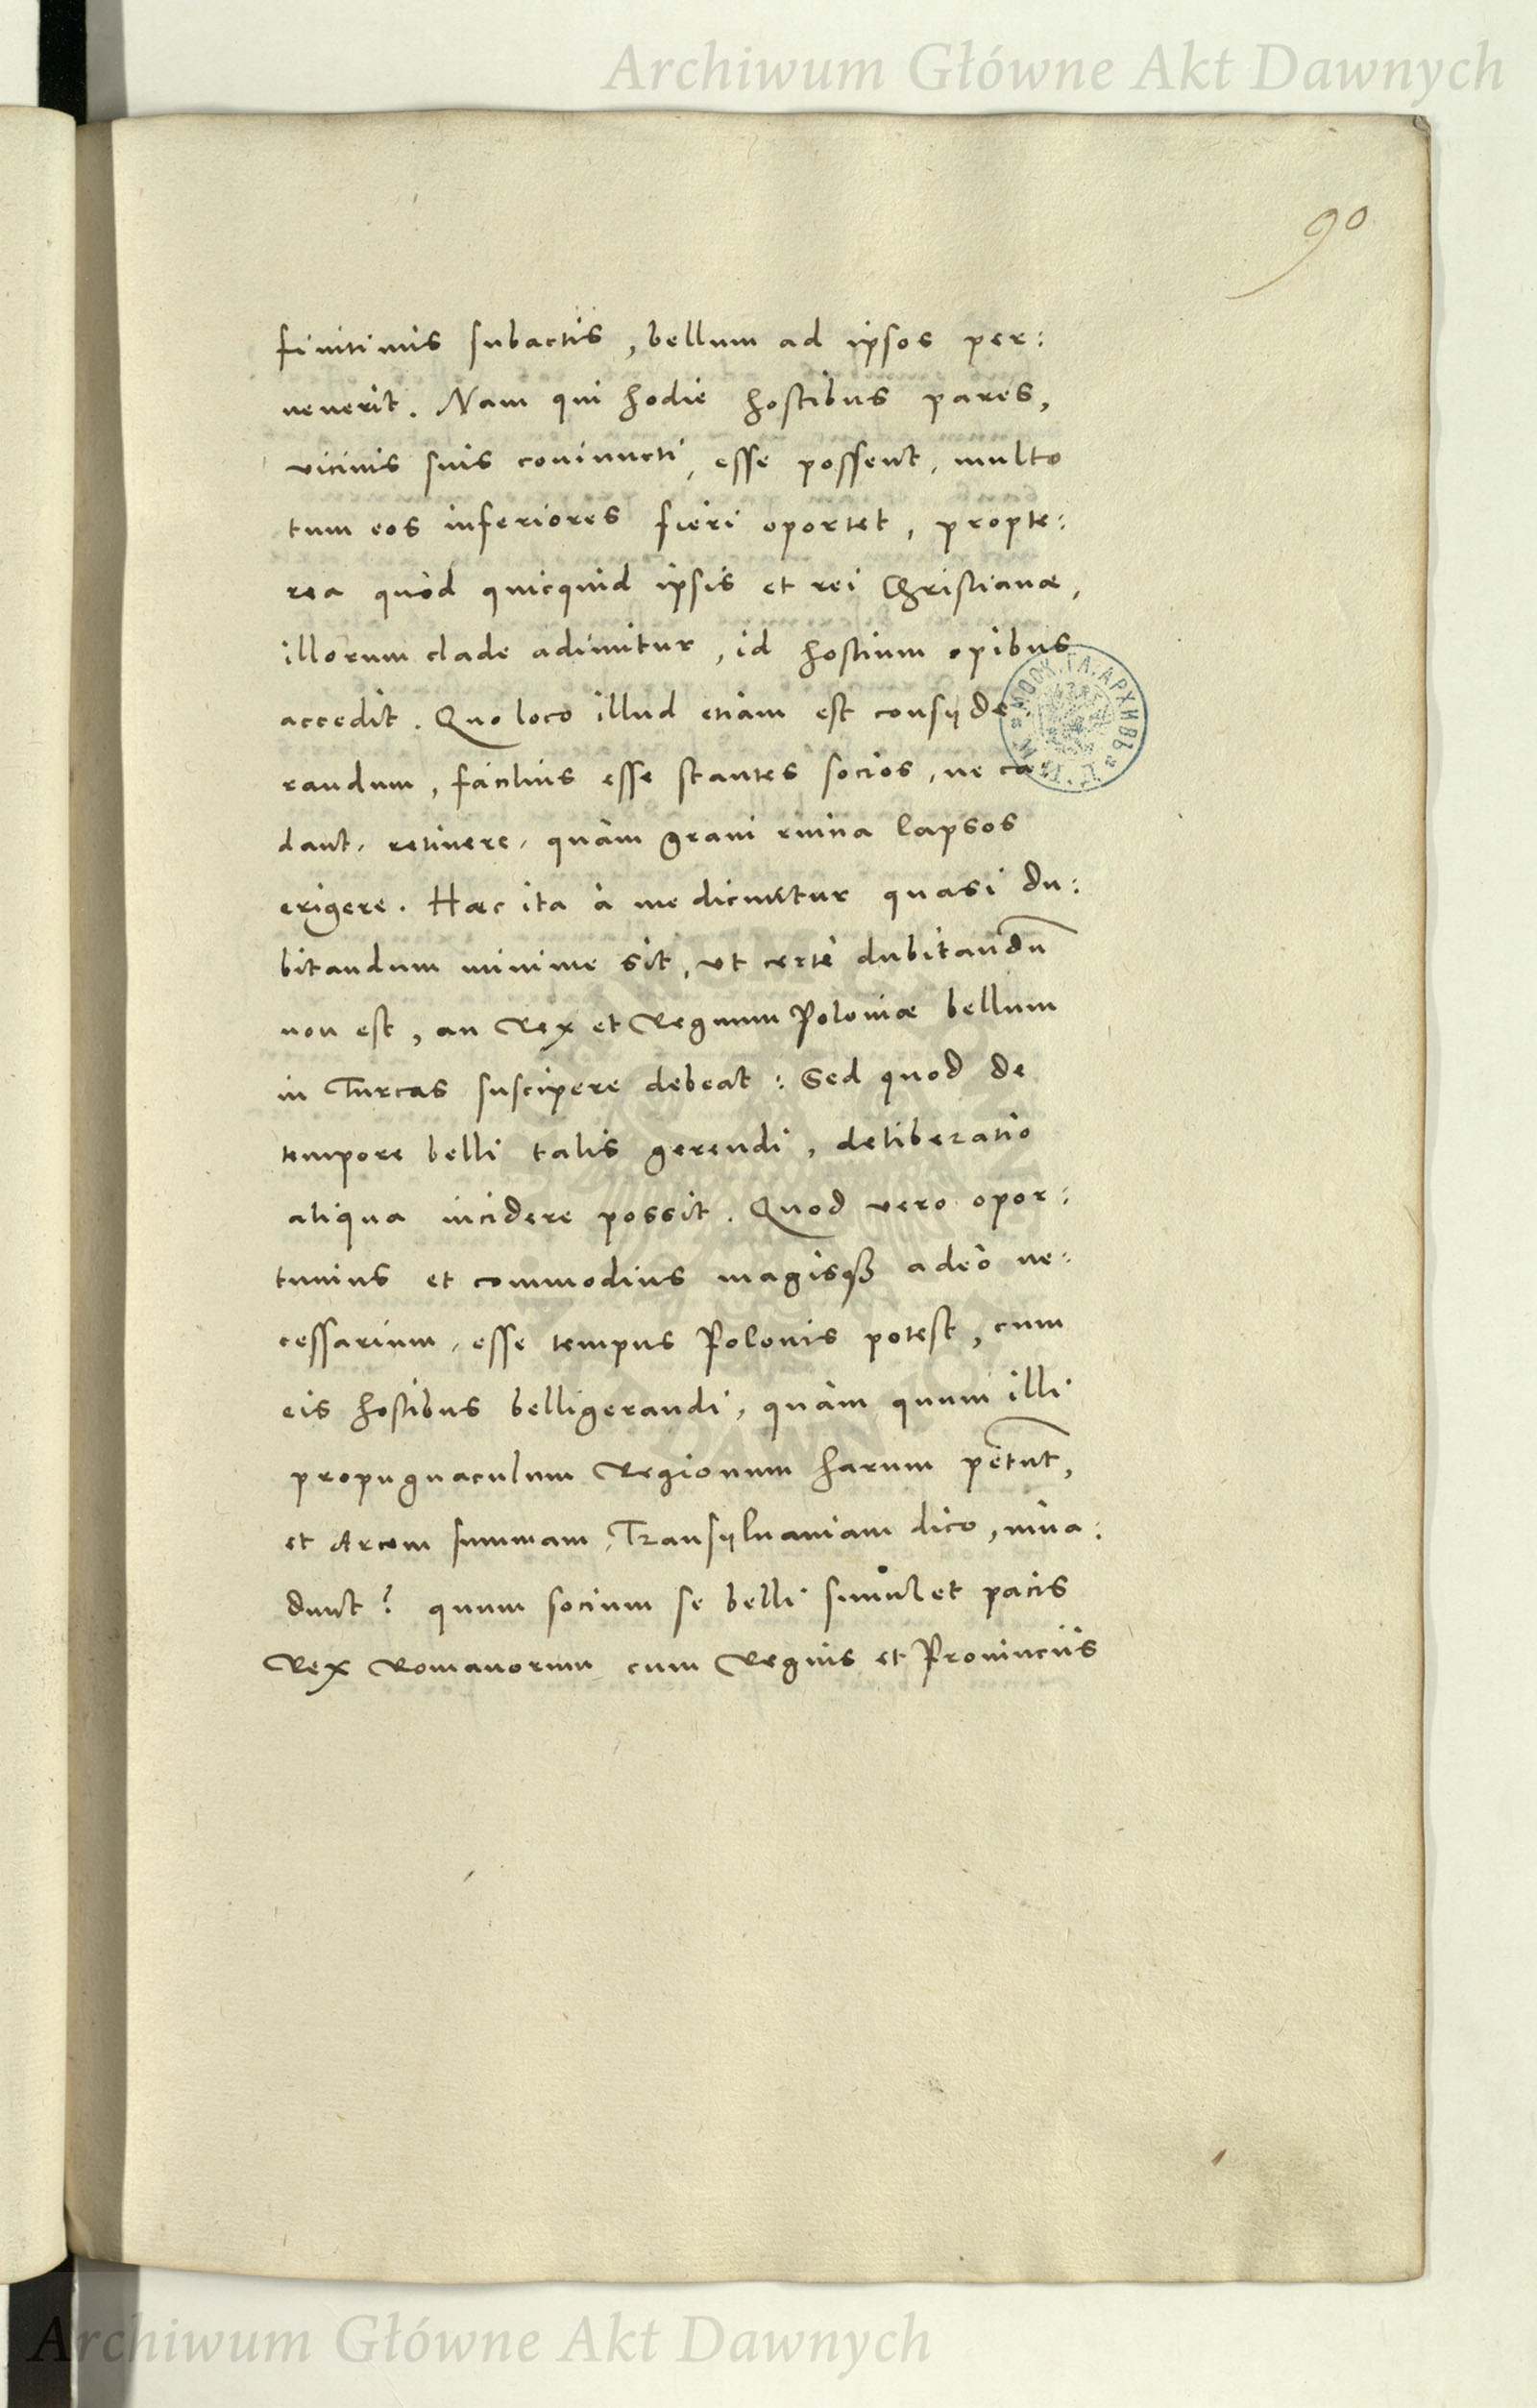 Archiwum Główne Akt Dawnych
90
finitimis subactis, bellum ad ipsos per:
venerit. Nam qui hodie hostibus pares,
vicinis suis coniuncti, esse possent, multo
tum eos inferiores fieri oportet, propte:
rea quòd quicquid ipsis et rei Christianæ,
illorum clade adimitur, id hostium opibus
accedit. Quo loco illud etiam est consyde
randum, facilius esse stantes socios, ne ca
dant, retinere, quàm gravi ruina lapsos
erigere. Hæc ita à me dicuntur quasi du:
bitandum minime sit, ut certè dubitandũ
non est, an Rex et Regnum Poloniæ bellum
in Turcas suscipere debeat: Sed quod de
tempore belli talis gerendi, deliberatio
aliqua incidere possit. Quod vero opor:
tunius et commodius magisqꝫ adeò ne:
cessarium, esse tempus Polonis potest, cum
eis hostibus belligerandi, quàm quum illi
propugnaculum Regionum harum petũt,
et Arcem summam, Transylvaniam dico, inva:
dunt? quum socium se belli simul et pacis
Rex Romanorum cum Regnis et Provinciis
Archiwum Główne Akt Dawnych